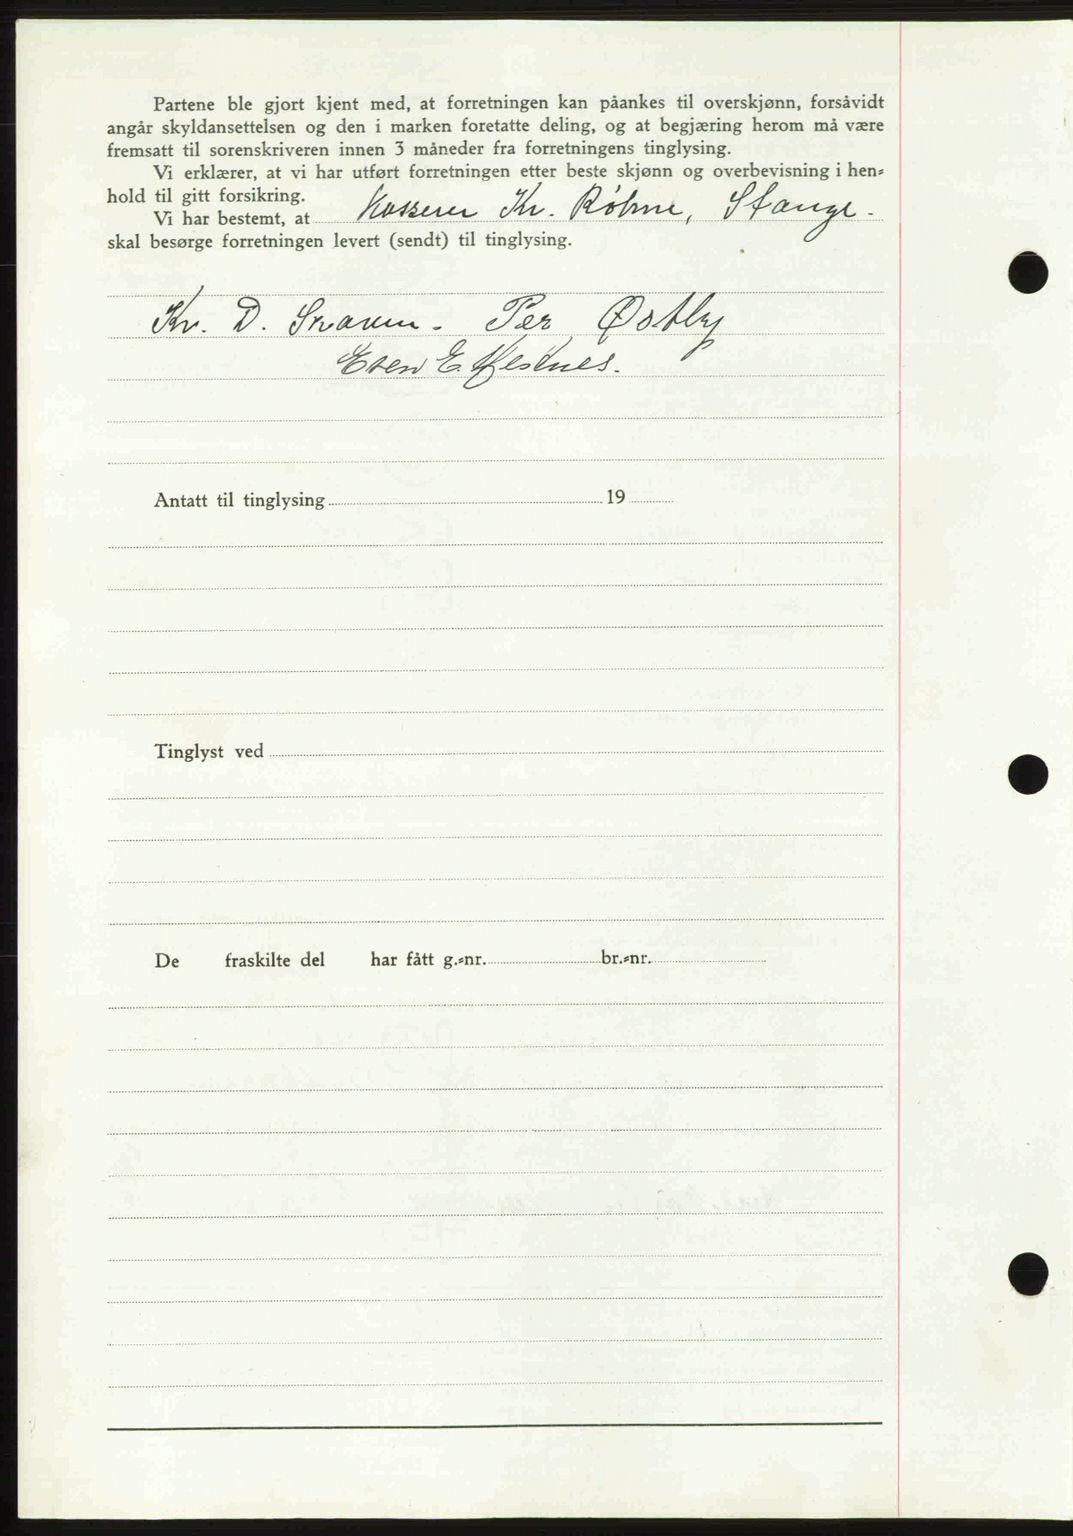 Partene ble gjort kjent med, at forretningen kan påankes til overskjønn, forsåvidt
angår skyldansettelsen og den i marken foretatte deling, og at begjæring herom må være
fremsatt til sorenskriveren innen 3 måneder fra forretningens tinglysing.
Vi erklærer, at vi har utført forretningen etter beste skjønn og overbevisning i hen-
hold til gitt forsikring.
Vi har bestemt, at Kasserer Kr. Røhne, Stange.
skal besørge forretningen levert (sendt) til tinglysing.
Kr. D. Per Østby
E.
Antatt til tinglysing 19
Tinglyst ved
De fraskilte del har fått g.-nr. br.-nr.